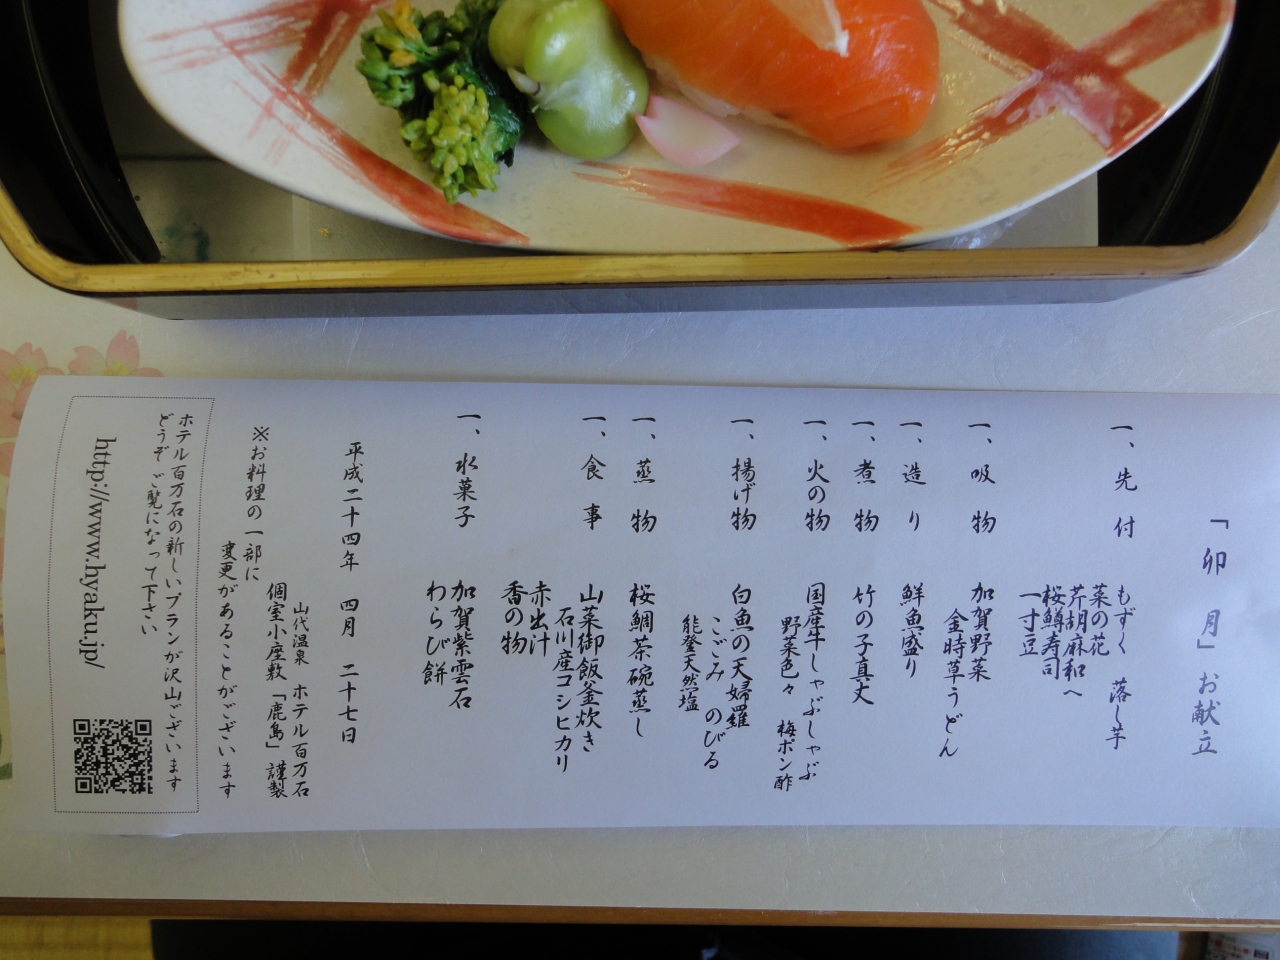 「卯 月」お献立
一、先 付 もずく 落し芋
菜の花
芹胡麻和へ
桜鱒寿司
一寸豆
一、吸 物 加賀野菜
金時草うどん
一、造 り 鮮魚盛り
一、煮 物 竹の子真丈
一、火の物 国産牛しゃぶしゃぶ
野菜色々 梅ポン酢
一、揚げ物 白魚の天婦羅
こごみ のびる
能登天然塩
一、蒸 物 桜鯛茶碗蒸し
一、食 事 山菜御飯釜炊き
石川産コシヒカリ
赤出汁
香の物
一、水菓子 加賀紫雲石
わらび餅
平成二十四年 四月 二十七日
山代温泉 ホテル百万石
個室小座敷「鹿島」謹製
※お料理の一部に
変更があることがございます
ホテル百万石の新しいプランが沢山ございます
どうぞ ご覧になって下さい
http://www.hyaku.jp/